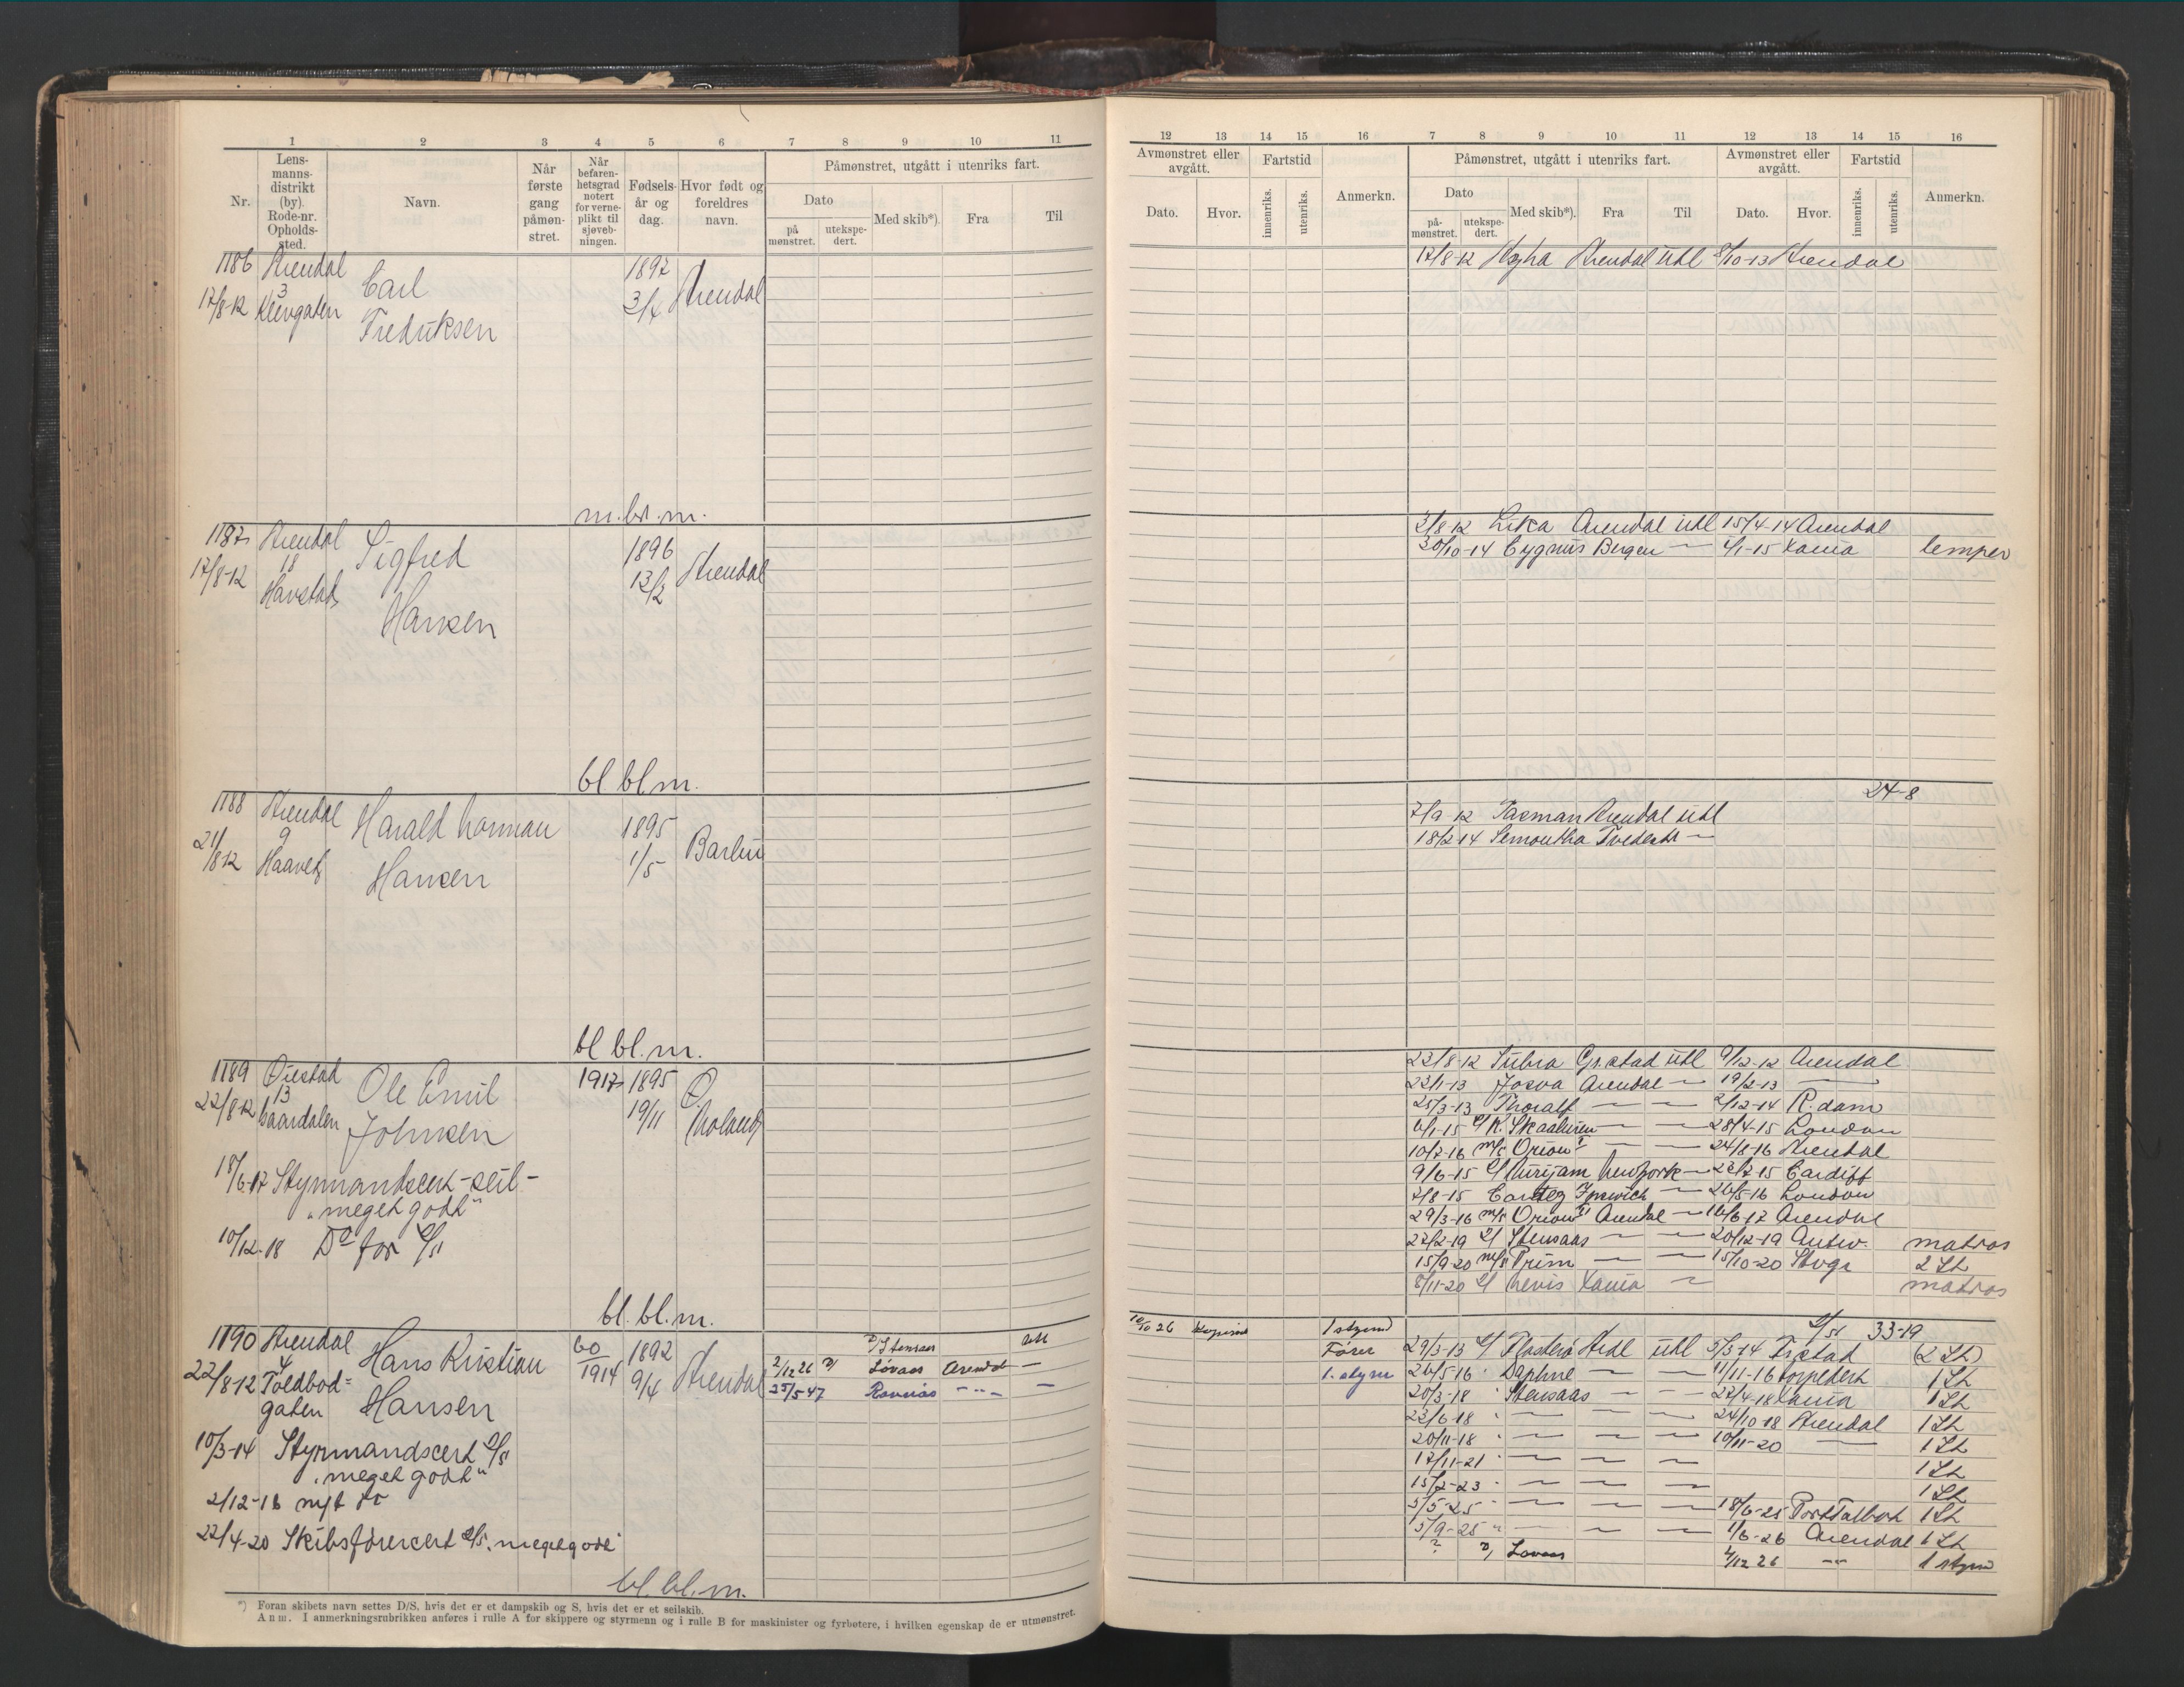 1 2 3 4 5 6 7 8 9 10 11
Nr.
Lens-
manns-
distrikt
(by).
Rode-nr.
Opholds-
sted.
Navn.
Når
første
gang
påmøn-
stret.
Når
befaren-
hetsgrad
notert
for verne-
plikt til
sjøveb-
ningen.
Fødsels-
år og
dag.
Hvor født og
foreldres
navn.
Påmønstret, utgått i utenriks fart.
Dato
på
mønstret.
utekspe-
dert.
Med skib*).
Fra
Til
1186 Arendal
3
17/8-12
Carl
Fredriksen
1892
3/4
Arendal
m.bl.m.
1187 Arendal
18
17/8-12 Havstad
Sigfred
Hansen
1896
13/2
Arendal
bl. bl.m.
1188 Arendal
9
21/8 12
Harald Norman
Hansen
1895
1/5
bl bl.m.
1189 Øiestad
13
22/8-12
Ole Emil
Johnsen
1917 1895
19/11
Ø.
Moland
18/6-17 Styrmandscert-seil-
"meget godt"
10/12-18 Do for D/S
bl. bl. m.
1190 Arendal
4
22/8 12 Toldbod=
gaten
Hans Kristian
Hansen
60
1914
1892
9/4
Arendal
D/ Stensaas utl
2/12 26 D/ Lovaas Arendal —
25/5 47 Ravnås -"- —
10/3-14 Styrmandscert D/S
"meget godt"
2/12-18 nyt do
22/4-20 Skibsførercert D/S "meget godt"
bl. bl. m.
*) Foran skibets navn settes D/S, hvis det er et dampskib og S, hvis det er et seilskib.
Anm. I anmerkningsrubrikken anføres i rulle A for skippere og styrmenn og i rulle B for maskinister og fyrbøtere, i hvilken egenskap de er utmønstret.
12 13 14 15 16 7 8 9 10 11 12 13 14 15 16
Avmønstret eller
avgått.
Dato. Hvor.
Fartstid
innenriks.
utenriks.
Anmerkn.
Påmønstret, utgått i utenriks fart.
Dato
på-
mønstret.
utekspe-
dert.
Med skib*).
Fra
Til
Avmønstret eller
avgått.
Dato. Hvor.
Fartstid
innenriks.
utenriks.
Anmerkn.
17/8-12 Arendal utl 8/10-13 Arendal
3/8 12 Lika Arendal utl 15/4-14 Arendal
20/10-14 Cygnus Bergen — 2/1-15 Xania lemper
24-8
7/9 12 Tasman Arendal utl
18/2 14 Semantha Tvedestr —
22/8-12 Grstad utl 9/12-12 Arendal
22/1-13 Josva Arendal — 19/2-13 —
25/3-13 Thoralf — — 2/12-14 R.dam
6/1-15 D/ K. Skaaluren — — 28/4-15 London
10/2-16 m/s Orion I — — 24/8-16 Arendal
9/6-15 D/ Newyork — 22/7-15 Cardiff
7/8-15 Ipswich — 26/5-16 London
29/3-16 m/s Orion II Arendal — 16/6-17 Arendal
22/2-19 D/ Stensaas — — 20/12-19 Antw. matros
15/9-20 m/s Prim — — 15/10-20 Stvgr 2 St
8/11-20 D/ Nevis Xania — matros
10/10 26 1 styrmd
D/S 33-19
Fører 29/3-13 D/ Flosteø Ardl utl 5/3-14 Frstad (2 St)
1. styrm 26/5-16 " Daphne — — 11/11-16 torpedert 1 St
20/3-18 " Stensaas — — 22/4-18 Xania 1 St
23/6-18 " — — — 24/10-18 Arendal 1 St
20/11-18 " — — — 10/11-20 — 1 St
17/11-21 " — — — 1 St
15/2-23 " — — — 1 St
5/5-25 " — — — 18/6-25 Port Talbot 1 St
5/9-25 " — — — 1/6-26 Arendal 1 St
? D/ Lovaas 4/12 26 -"- 1 styrmd